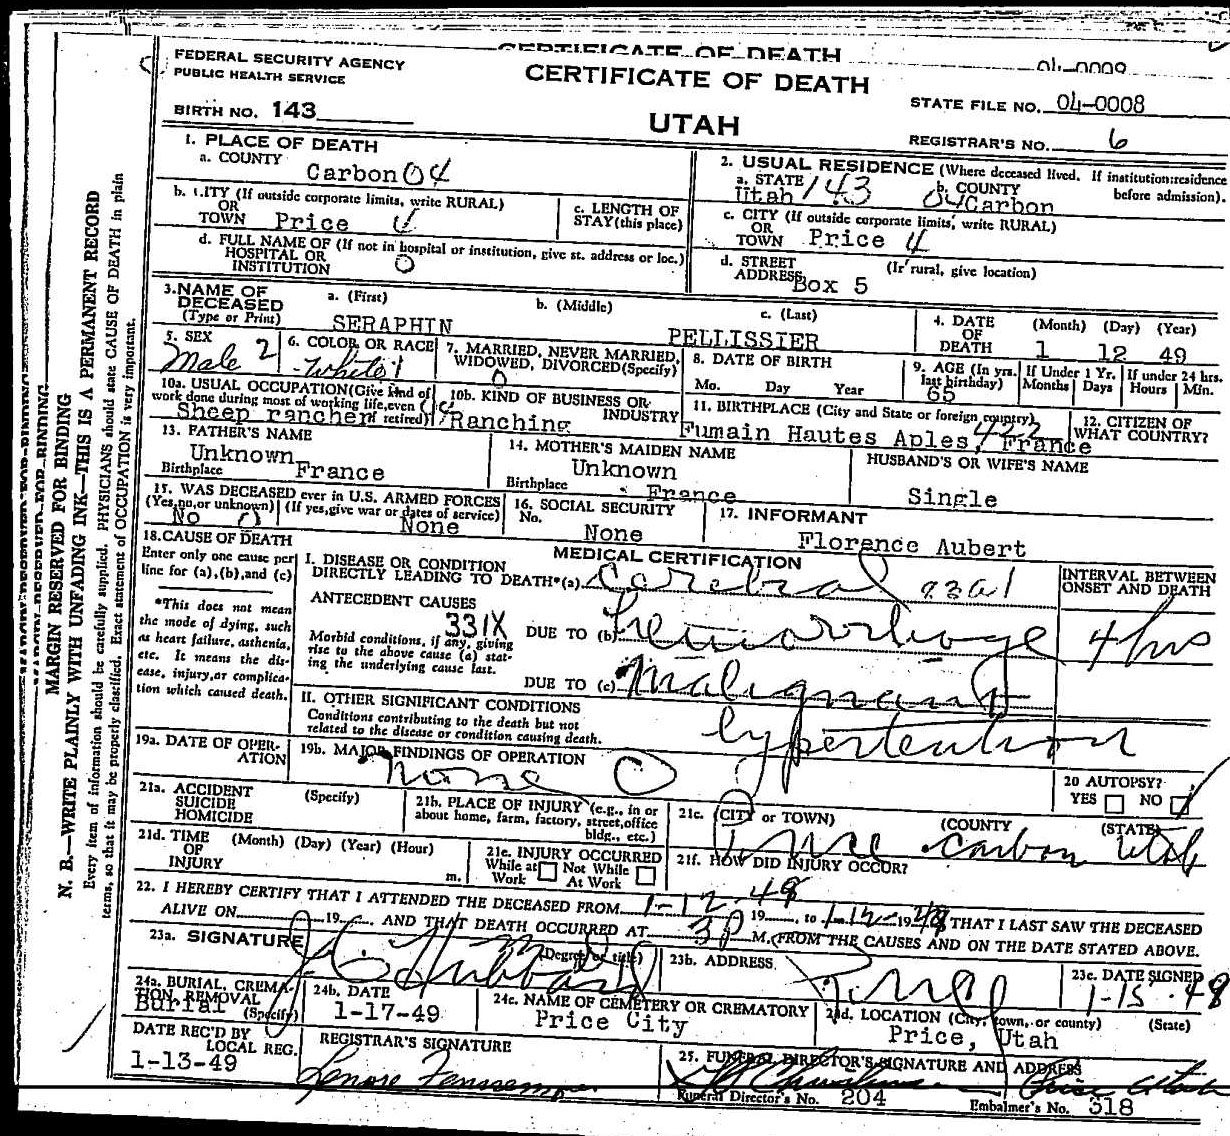 CERTIFICATE OF DEATH
04-0009
FEDERAL SECURITY AGENCY
PUBLIC HEALTH SERVICE
CERTIFICATE OF DEATH
STATE FILE NO. 04-0008
BIRTH NO. 143
UTAH
REGISTRAR'S NO. 6
1. PLACE OF DEATH
a. COUNTY
Carbon 04
2. USUAL RESIDENCE (Where deceased lived. If institution: residence before admission).
a. STATE
Utah 143
b. COUNTY
04 Carbon
b. CITY (If outside corporate limits, write RURAL)
OR
TOWN Price 4
c. LENGTH OF
STAY (this place)
c. CITY (If outside corporate limits, write RURAL)
OR
TOWN Price 4
d. FULL NAME OF (If not in hospital or institution, give st. address or loc.)
HOSPITAL OR
INSTITUTION 0
d. STREET (If rural, give location)
ADDRESS Box 5
3. NAME OF
DECEASED
(Type or Print)
a. (First)
b. (Middle)
c. (Last)
SERAPHIN PELLISSIER
4. DATE
OF
DEATH
(Month) (Day) (Year)
1 12 49
5. SEX
Male 2
6. COLOR OR RACE
White 1
7. MARRIED, NEVER MARRIED,
WIDOWED, DIVORCED (Specify)
0
8. DATE OF BIRTH
Mo. Day Year
9. AGE (In yrs.
last birthday)
65
If Under 1 Yr.
Months Days
If under 24 hrs.
Hours Min.
10a. USUAL OCCUPATION (Give kind of
work done during most of working life, even
if retired)
Sheep rancher
10b. KIND OF BUSINESS OR
INDUSTRY
Ranching
11. BIRTHPLACE (City and State or foreign country)
Fumain Hautes Aples, France
12. CITIZEN OF
WHAT COUNTRY?
13. FATHER'S NAME
Unknown
Birthplace France
14. MOTHER'S MAIDEN NAME
Unknown
Birthplace France
HUSBAND'S OR WIFE'S NAME
Single
15. WAS DECEASED ever in U.S. ARMED FORCES
(Yes, no, or unknown) (If yes, give war or dates of service)
No 0 None
16. SOCIAL SECURITY
No.
None
17. INFORMANT
Florence Aubert
18. CAUSE OF DEATH
Enter only one cause per
line for (a), (b), and (c)
*This does not mean
the mode of dying, such
as heart failure, asthenia,
etc. It means the dis-
ease, injury, or complica-
tion which caused death.
MEDICAL CERTIFICATION
I. DISEASE OR CONDITION
DIRECTLY LEADING TO DEATH*(a) Cerebral
ANTECEDENT CAUSES
331X
Morbid conditions, if any, giving
rise to the above cause (a) stat-
ing the underlying cause last.
DUE TO (b) hemorrhage
DUE TO (c) Malignant
hypertention
INTERVAL BETWEEN
ONSET AND DEATH
4 hrs
II. OTHER SIGNIFICANT CONDITIONS
Conditions contributing to the death but not
related to the disease or condition causing death.
19a. DATE OF OPER-
ATION
19b. MAJOR FINDINGS OF OPERATION
none 0
20 AUTOPSY?
YES NO
21a. ACCIDENT
SUICIDE
HOMICIDE
(Specify)
21b. PLACE OF INJURY (e.g., in or
about home, farm, factory, street, office
bldg., etc.)
21c. (CITY or TOWN) (COUNTY) (STATE)
Price Carbon Utah
21d. TIME
OF
INJURY
(Month) (Day) (Year) (Hour)
m.
21e. INJURY OCCURRED
While at Work Not While At Work
21f. HOW DID INJURY OCCUR?
22. I HEREBY CERTIFY THAT I ATTENDED THE DECEASED FROM 1-12-48 19, to 1-12-1948 THAT I LAST SAW THE DECEASED
ALIVE ON 19 AND THAT DEATH OCCURRED AT 3P M. (FROM THE CAUSES AND ON THE DATE STATED ABOVE.
23a. SIGNATURE (Degree or title)
Hubbard
23b. ADDRESS
Price
23c. DATE SIGNED
1-15-48
24a. BURIAL, CREMA-
TION, REMOVAL
(Specify)
Burial
24b. DATE
1-17-49
24c. NAME OF CEMETERY OR CREMATORY
Price City
24d. LOCATION (City, town, or county) (State)
Price, Utah
DATE REC'D BY
LOCAL REG.
1-13-49
REGISTRAR'S SIGNATURE
25. FUNERAL DIRECTOR'S SIGNATURE AND ADDRESS
Funeral Director's No. 204
Embalmer's No. 318
MARGIN RESERVED FOR BINDING
N. B.—WRITE PLAINLY WITH UNFADING INK—THIS IS A PERMANENT RECORD
Every item of information should be carefully supplied. PHYSICIANS should state CAUSE OF DEATH in plain
terms, so that it may be properly classified. Exact statement of OCCUPATION is very important.